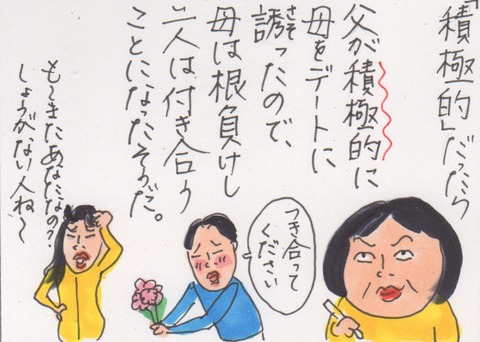 「積極的」だったら
父が積極的に
母をデートに
誘ったので、
さそ
母は根負けし
二人は付き合う
ことになったそうだ。
つき合って
ください
も〜きたあなたなの?
しょうがない人ね〜